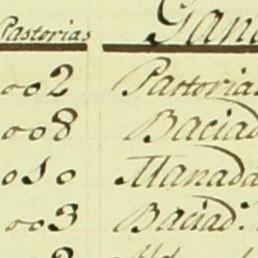 Pastorias Gan
..002 Pastorias
..008 Baciad
..010 Manada
..003 Baciad.^s